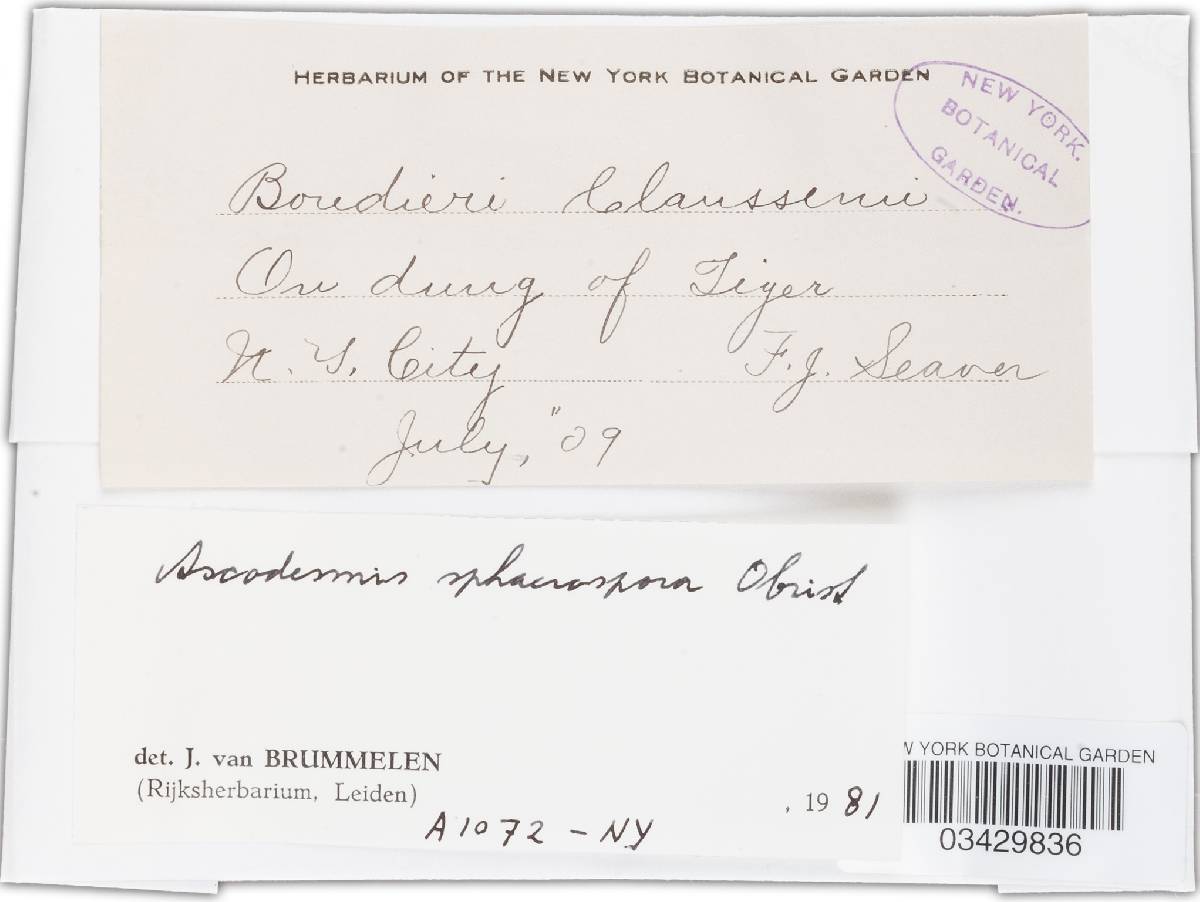 HERBARIUM OF THE NEW YORK BOTANICAL GARDEN
NEW YORK.
BOTANICAL
GARDEN.
Boudieri Claussenii
On dung of Tiger
N. Y. City F. J. Seaver
July, "09
Ascodesmis sphaerospora Obrist
det. J. van BRUMMELEN
(Rijksherbarium, Leiden)
, 1981
A1072 - NY
W YORK BOTANICAL GARDEN
03429836